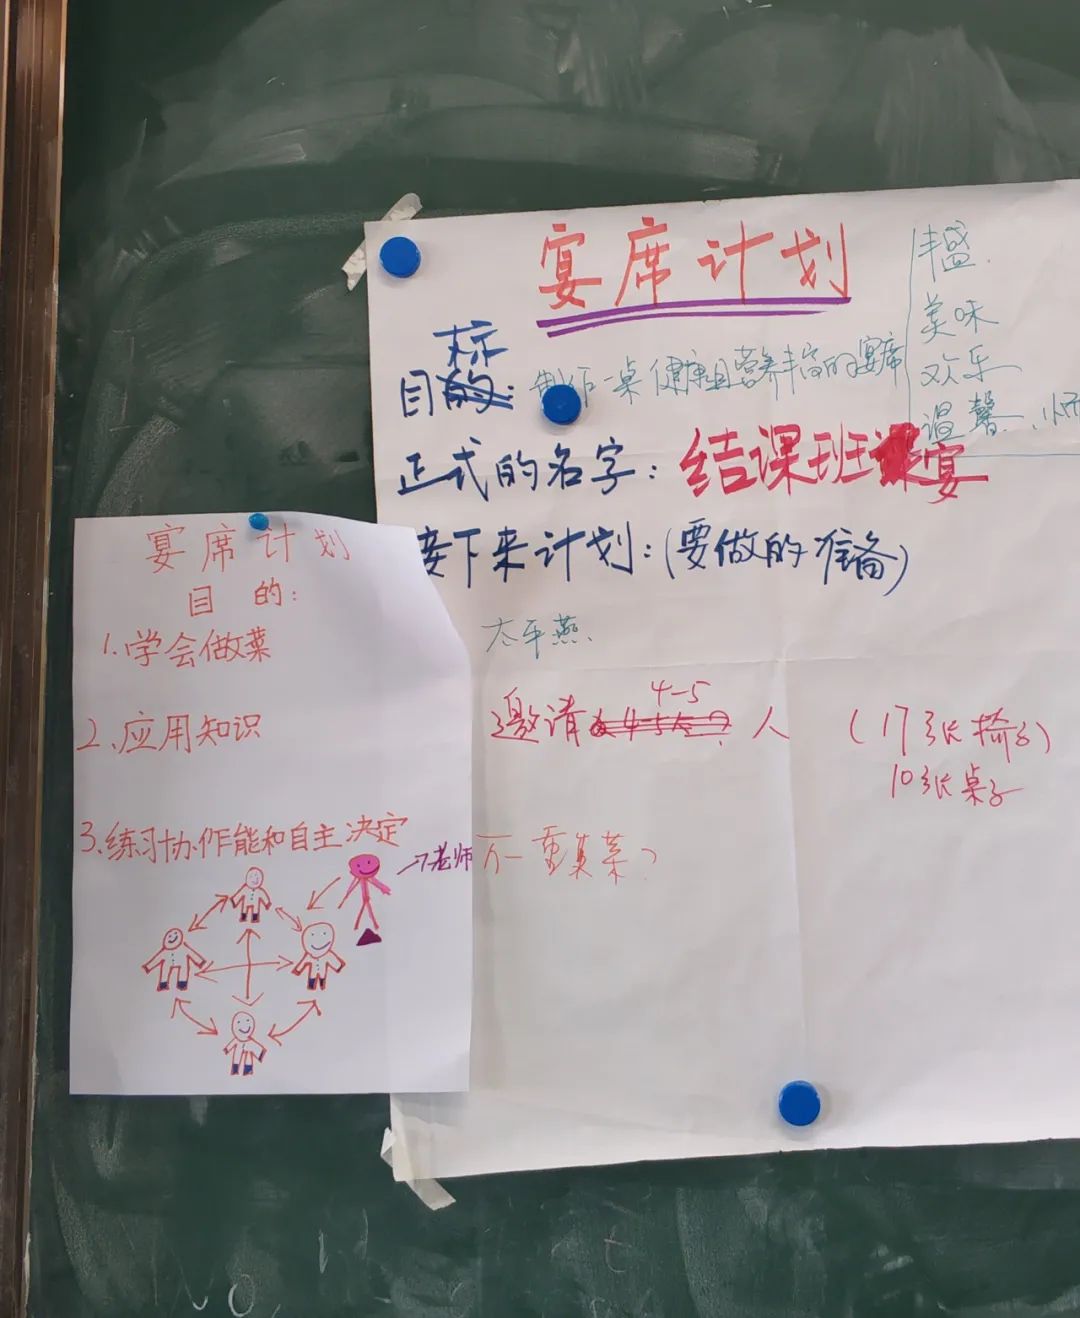 宴席计划
丰盛、
美味
欢乐
温馨、
目标:制作一桌健康且营养丰富的宴席
正式的名字:结课班宴
接下来计划:(要做的准备)
太平燕、
邀请4-5人 (17张椅子)
10张桌子
万一重复菜?
宴席计划
目的:
1.学会做菜
2、应用知识
3.练习协作能和自主决定
→老师